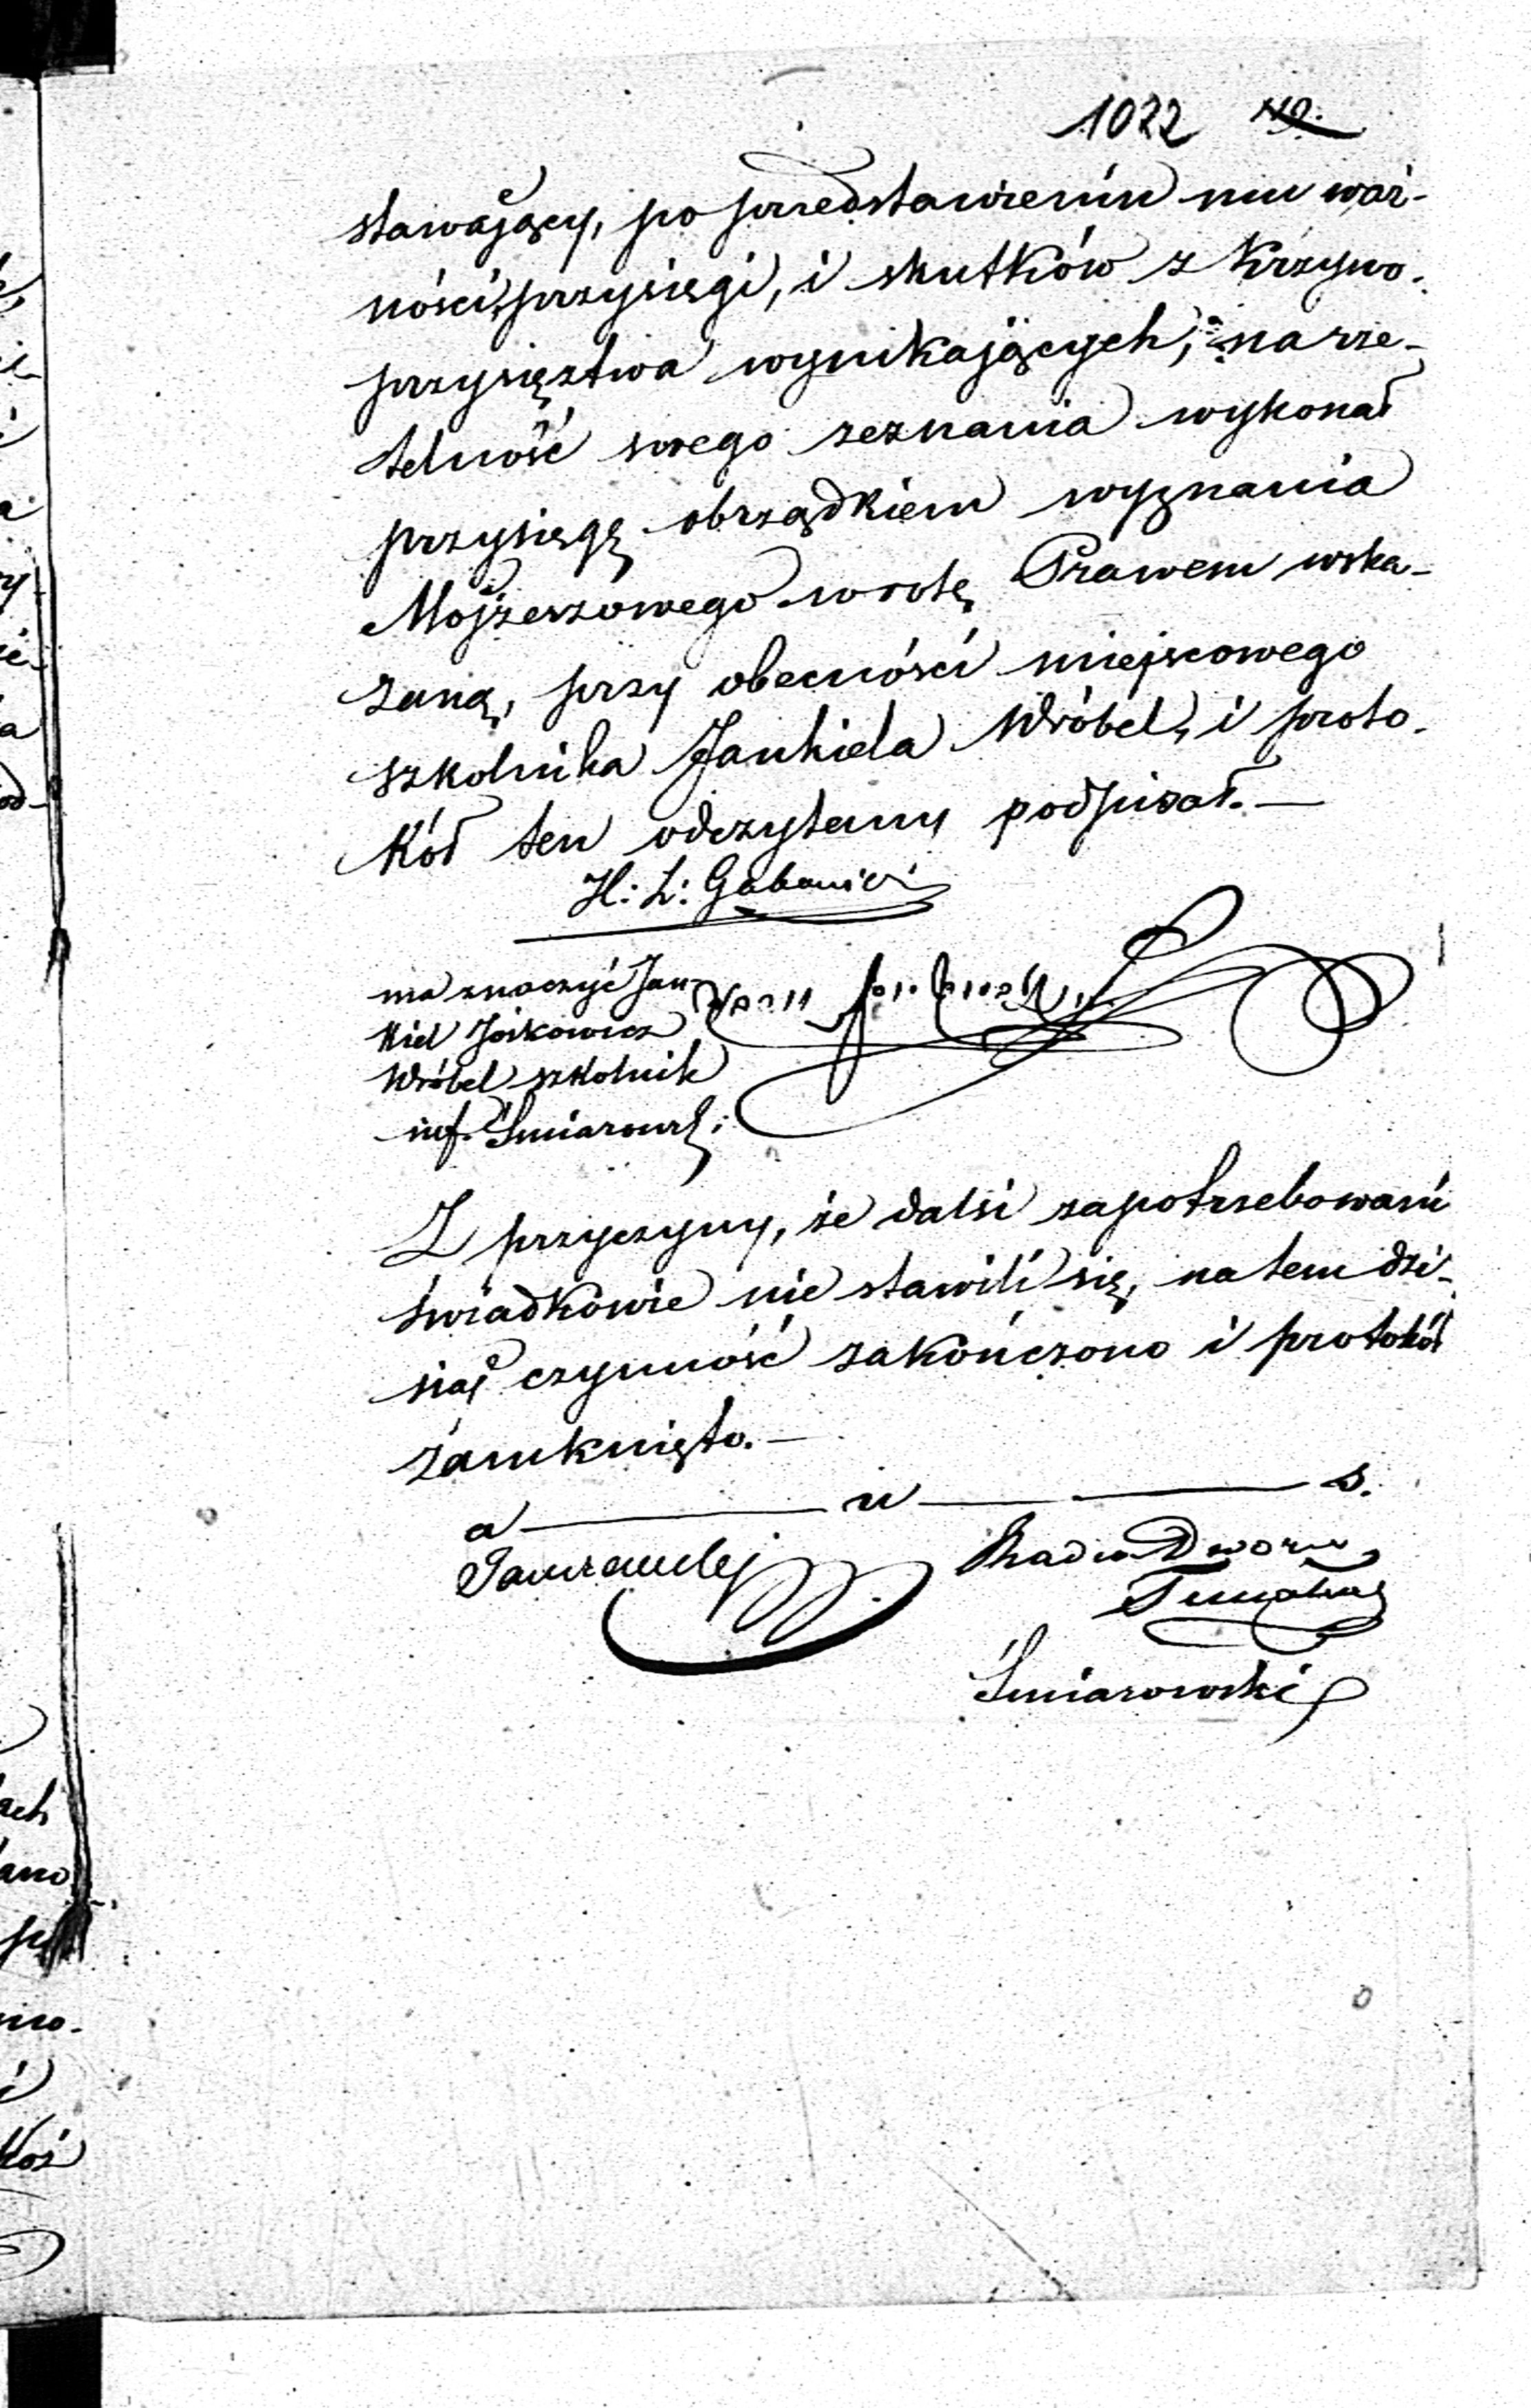 1022
stawający, po przedstawieniu mu waż-
ności przysięgi, i skutków z krzywo-
przysięztwa wynikających, na rze-
telność swego zeznania wykonał
przysięgę obrządkiem wyznania
Mojżeszowego w rotę Prawem wska-
zaną, przy obecności miejscowego
szkolnika Jankiela Wróbel, i proto-
kół ten odczytany podpisał.—
H: L:
ma znaczyć Jan-
kiel Joskowicz
Wróbel szkolnik
Śmiarowski
Z przyczyny, że dalsi zapotrzebowani
świadkowie nie stawili się, na tem dzi-
siaj czynność zakończono i protokół
zamknięto.—
a — u — s.
Radca Dworu
Śmiarowski